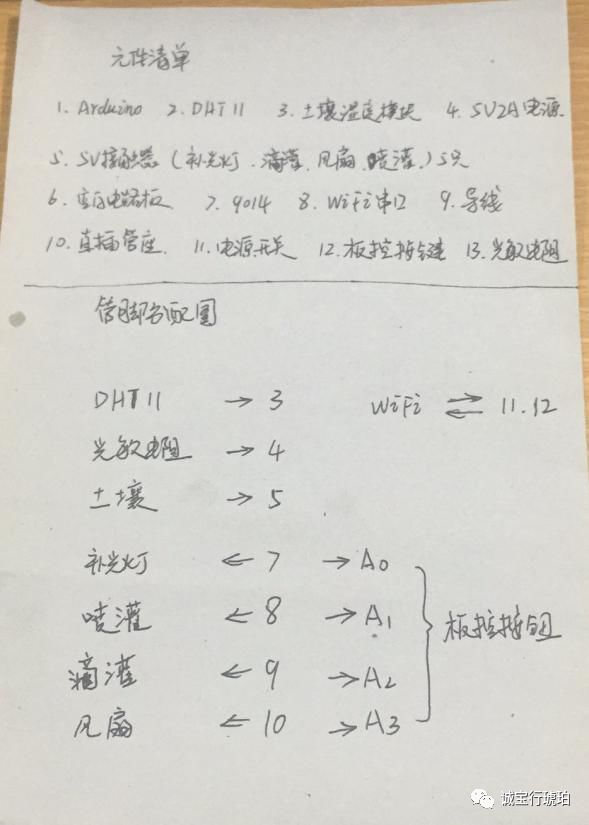 元件清单
1. Arduino 2. DHT11 3. 土壤湿度模块 4. 5V2A电源
5. 5V接触器(补光灯、滴灌、风扇、喷灌)5只
6. 电路板 7. 9014 8. WiFi串口 9. 导线
10. 直插管座 11. 电源开关 12. 板控按键 13. 光敏电阻
管脚分配图
DHT11 → 3 WiFi ⇌ 11.12
光敏电阻 → 4
土壤 → 5
补光灯 ← 7 → A0
喷灌 ← 8 → A1
滴灌 ← 9 → A2
风扇 ← 10 → A3
板控按钮
诚宝行琥珀